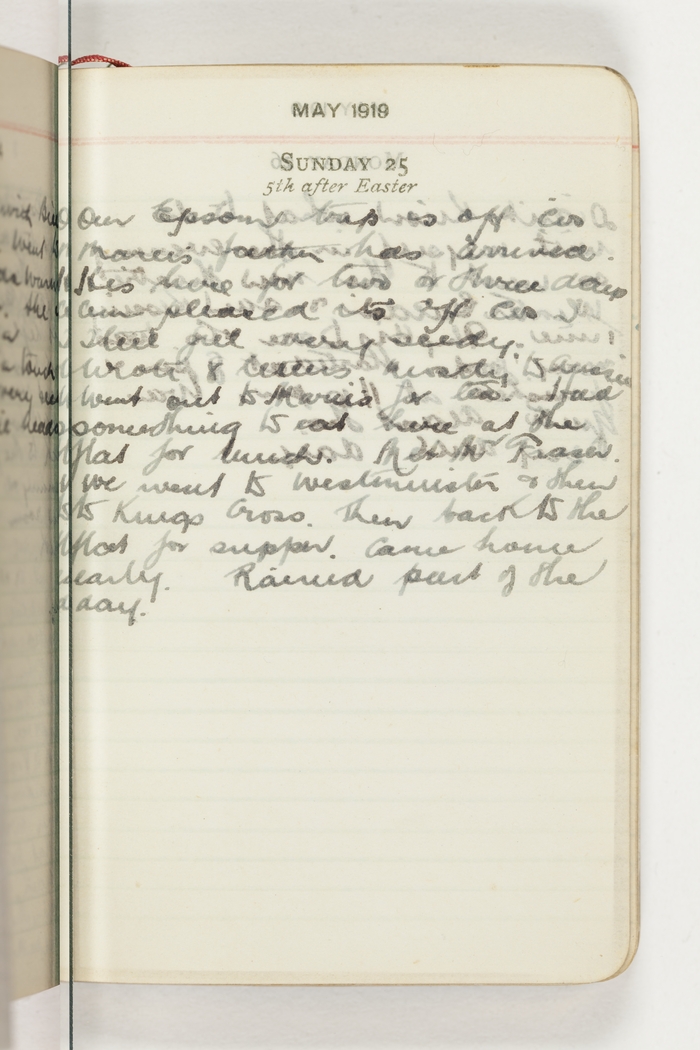 MAY 1919
SUNDAY 25
5th after Easter
Our Epsom trip is off as
Maries father has arrived.
His here for two or three days
am pleased its off as I
feel very seedy.
Wrote 8 letters mostly to
Went out to Maries for tea. Had
something to eat here at the
flat for lunch. Met Mr Fraser.
We went to Westminister & then
to Kings Cross. Then back to the
flat for supper. Came home
early. Rained part of the
day.